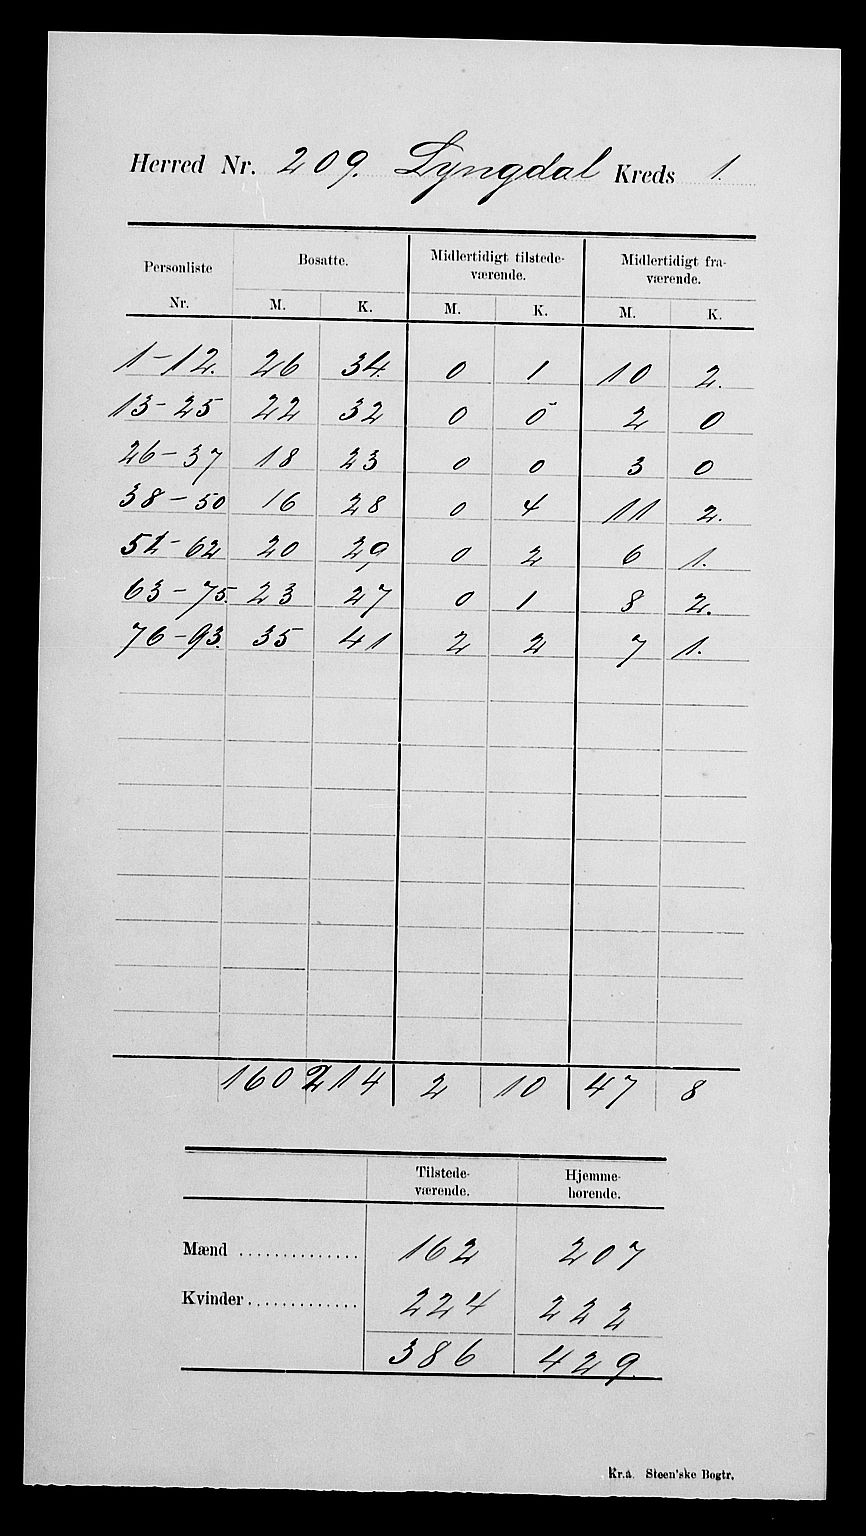 Herred Nr. 209. Lyngdal Kreds 1.
Personliste Nr. Bosatte. Midlertidigt tilstede- værende. Midlertidigt fra- værende.
M. K. M. K. M. K.
1-12. 26 34. 0 1 10 2.
13-25 22 32 0 0 2 0
26-37 18 23 0 0 3 0
38-50 16 28 0 4 11 2.
51-62 20 29 0 2 6 1.
63-75. 23 27 0 1 8 2.
76-93. 35 41 2 2 7 1.
160 214 2 10 47 8
Tilstede- værende. Hjemme- hørende.
Mænd .............. 162 207
Kvinder ............. 224 222
386 429.
Kr.a. Steen'ske Bogtr.